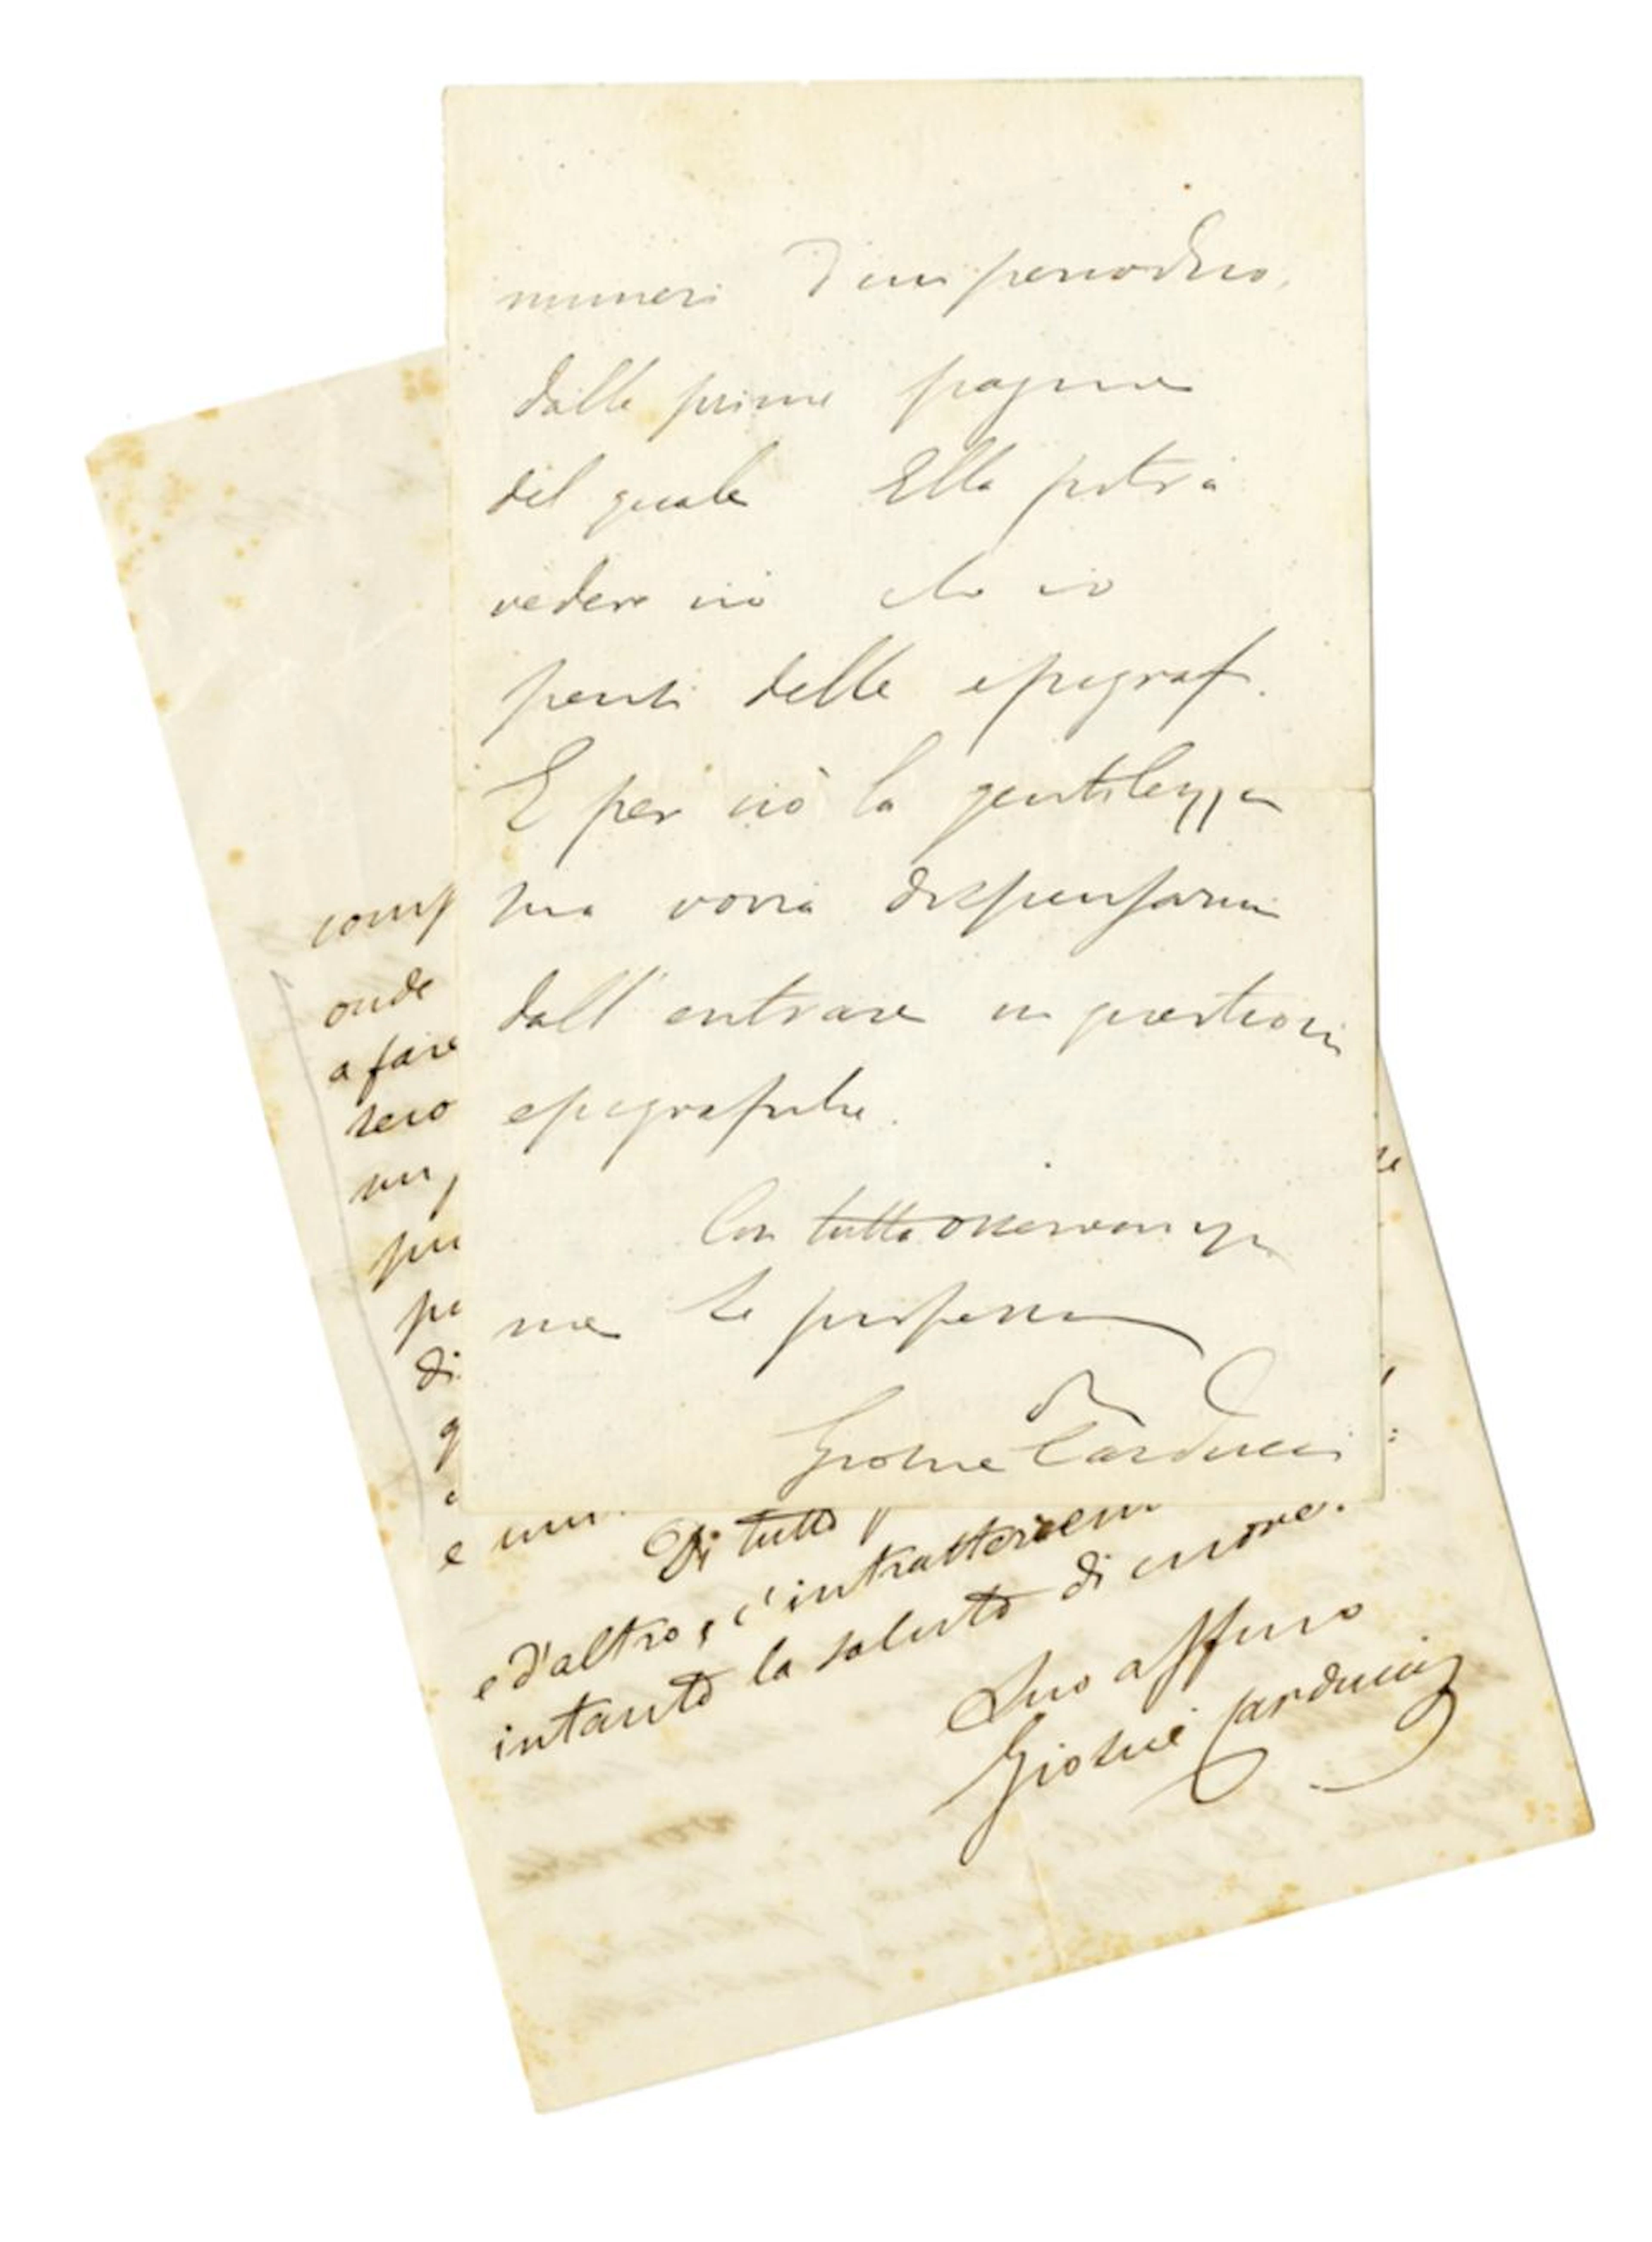 numeri d'un periodico,
dalle prime pagine
del quale Ella potrà
vedere ciò che io
pensi delle epigrafi.
E per ciò la gentilezza
sua vorrà dispensarmi
dall'entrare in questioni
epigrafiche.
Con tutta osservanza
me Le professo
Giosue Carducci
onde
a fare
un
di
e
Di tutto
e d'altro, c'intratterremo
intanto la saluto di cuore.
Suo affmo
Giosuè Carducci